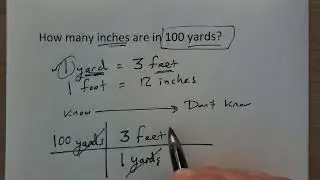 How many inches are in 100 yards?
1 yard = 3 feet
1 foot = 12 inches
Know → Don't know
100 yards 3 feet
1 yards